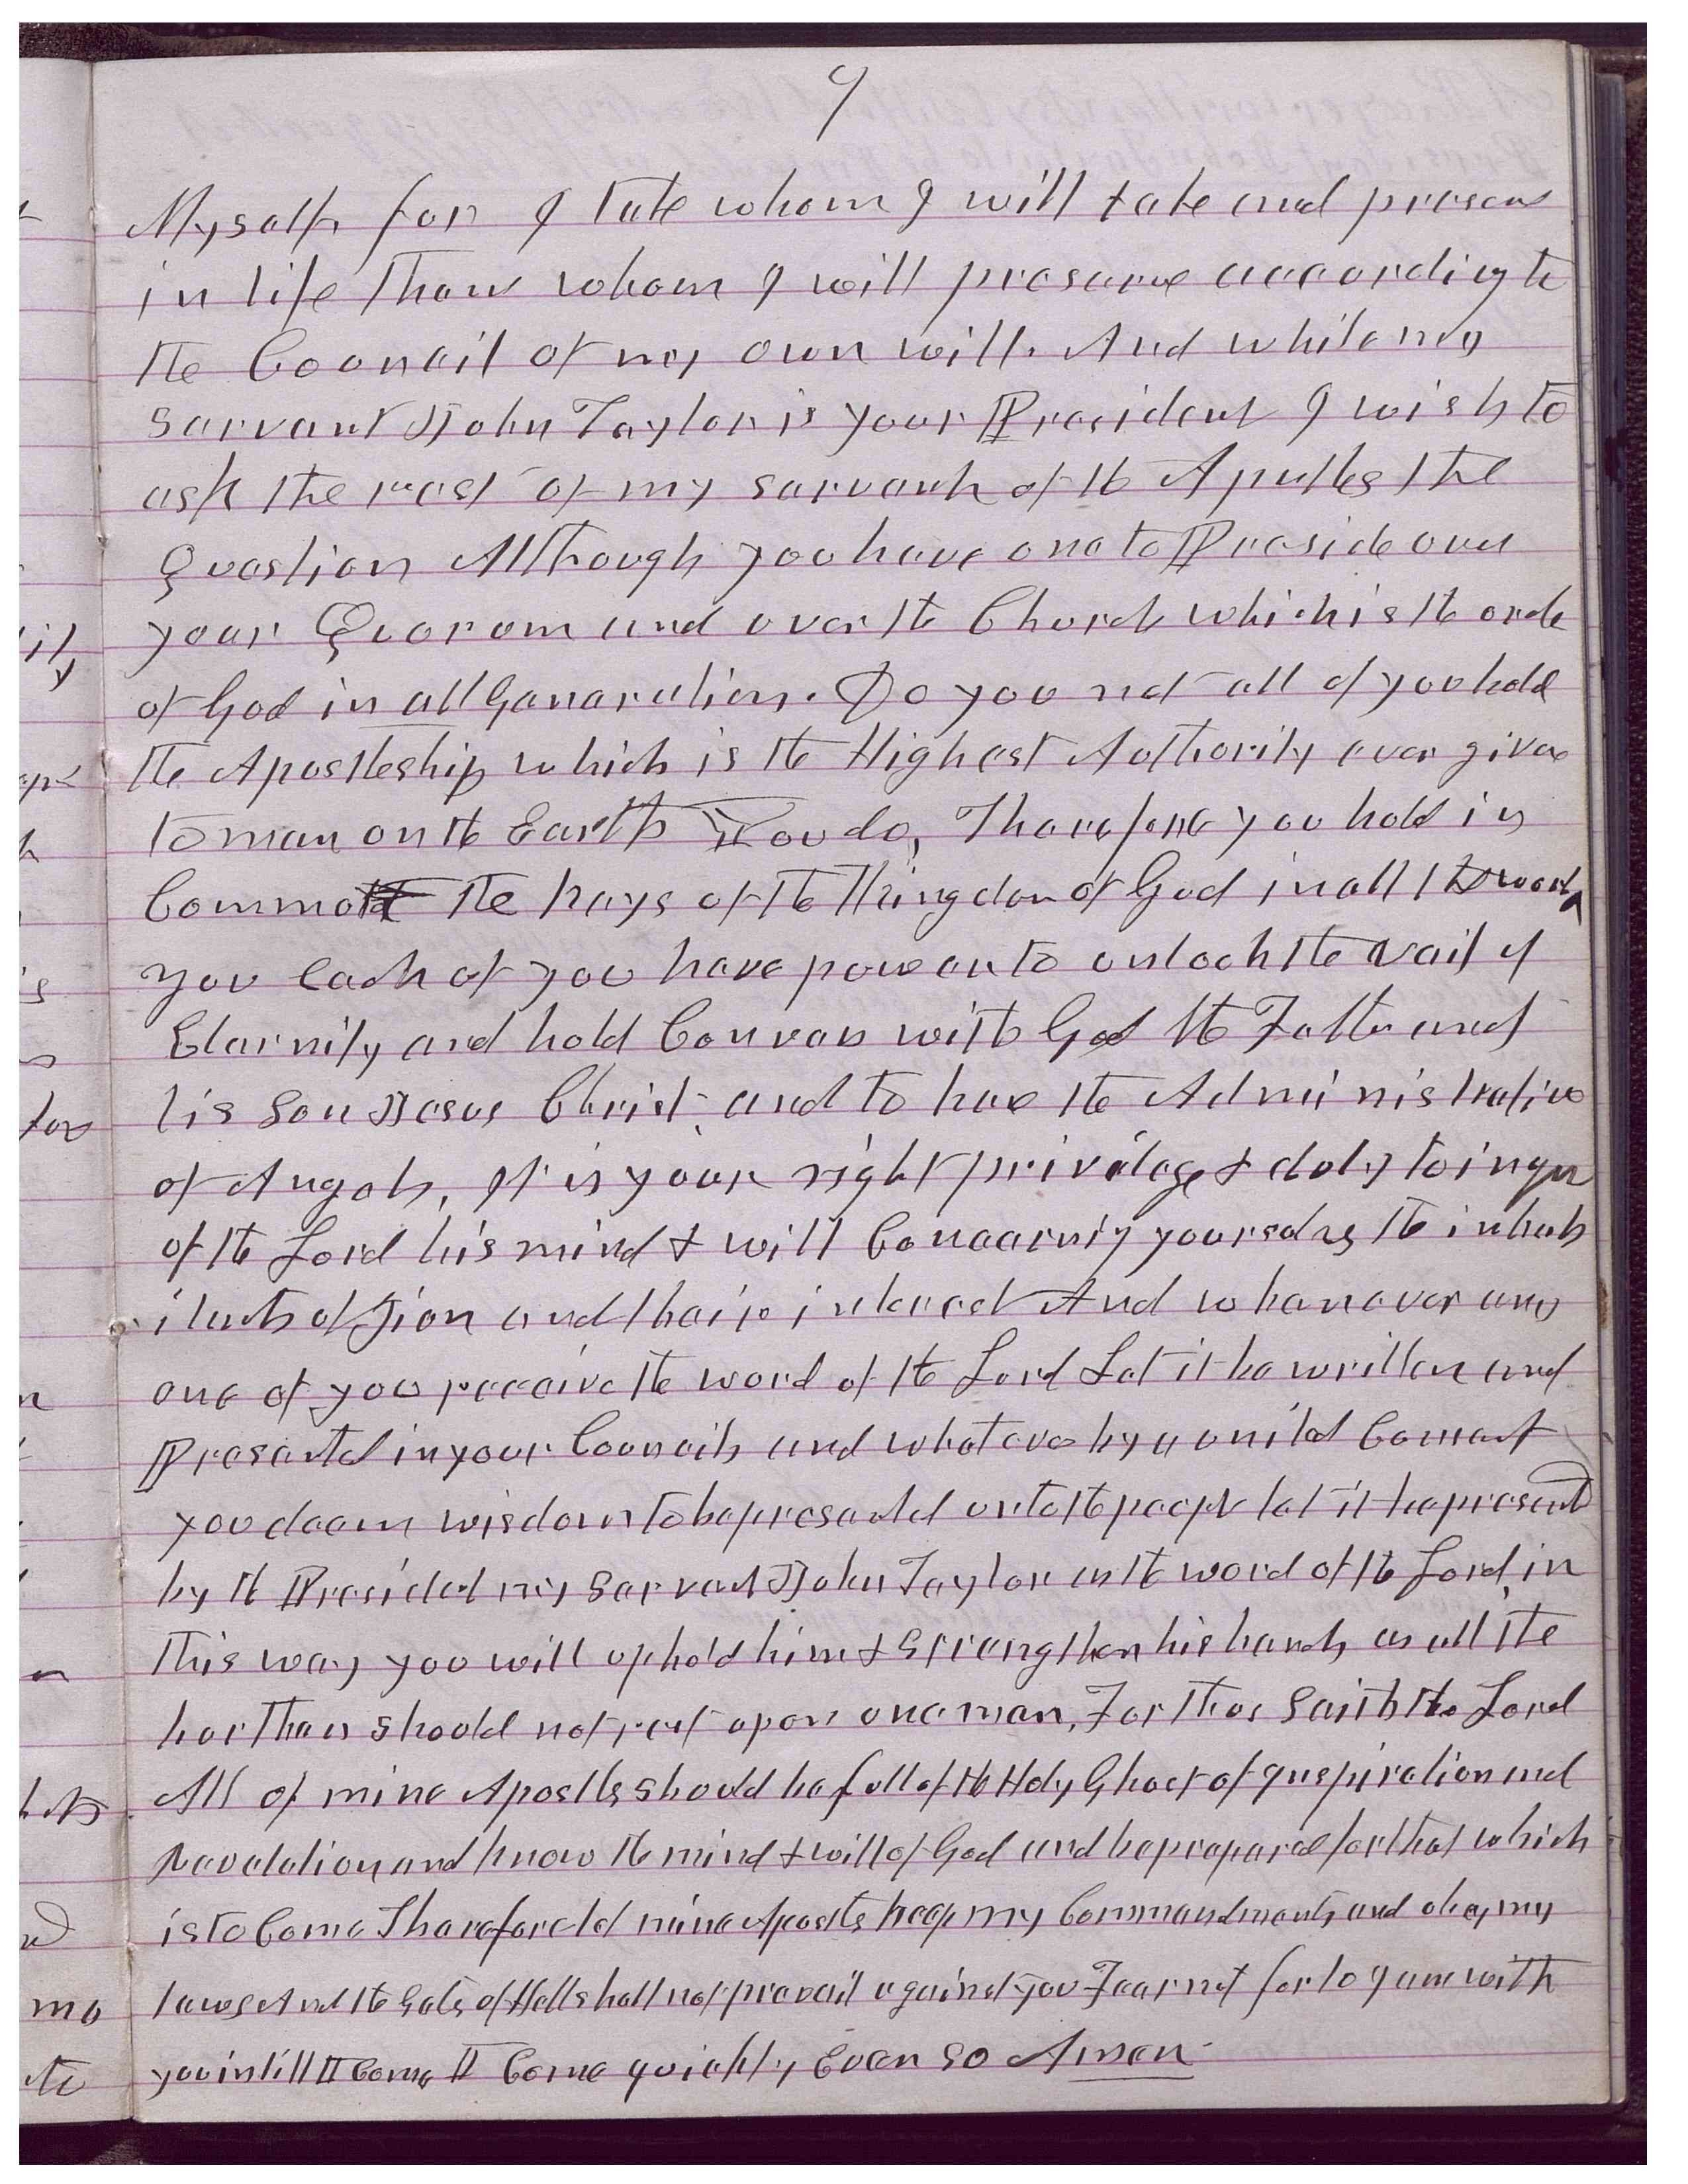 9
Myself, for I take whom I will take and preserv
in life them whom I will preserve according to
the Council of my own will. And while my
servant John Taylor is your President I wish to
ask the rest of my servants of the Apostles the
Question Although you have one to Preside over
your Quorum and over the Church which is the orde
of God in all Generations. Do you not all of you hold
the Apostleship which is the Highest Authority ever given
to man on the Earth You do, Therefore you hold in
Common the keys of the Kingdom of God in all the world
you each of you have power to unlock the vail of
Eternity and hold Convers with God the Father and
his Son Jesus Christ and to have the Administrations
of Angels, It is your right privilege & duty to inqur
of the Lord his mind & will Concerning yourselves the inhab
itants of Zion and their interest And whenever any
one of you receive the word of the Lord Let it be written and
Presented in your Councils and whatever by a united Consent
you deem wisdom to be presented unto the people let it be presented
by the President my servant John Taylor as the word of the Lord, in
this way you will uphold him & strengthen his hands as all the
burthen should not rest upon one man, For thus saith the Lord
All of mine Apostles should be full of the Holy Ghost of Inspiration and
Revelation and know the mind & will of God and be prepared for that which
is to Come Therefore let mine Apostles keep my Commandments and obey my
laws And the Gates of Hell shall not prevail against you Fear not for lo I am with
you intill I Come, I Come quickly Even so Amen